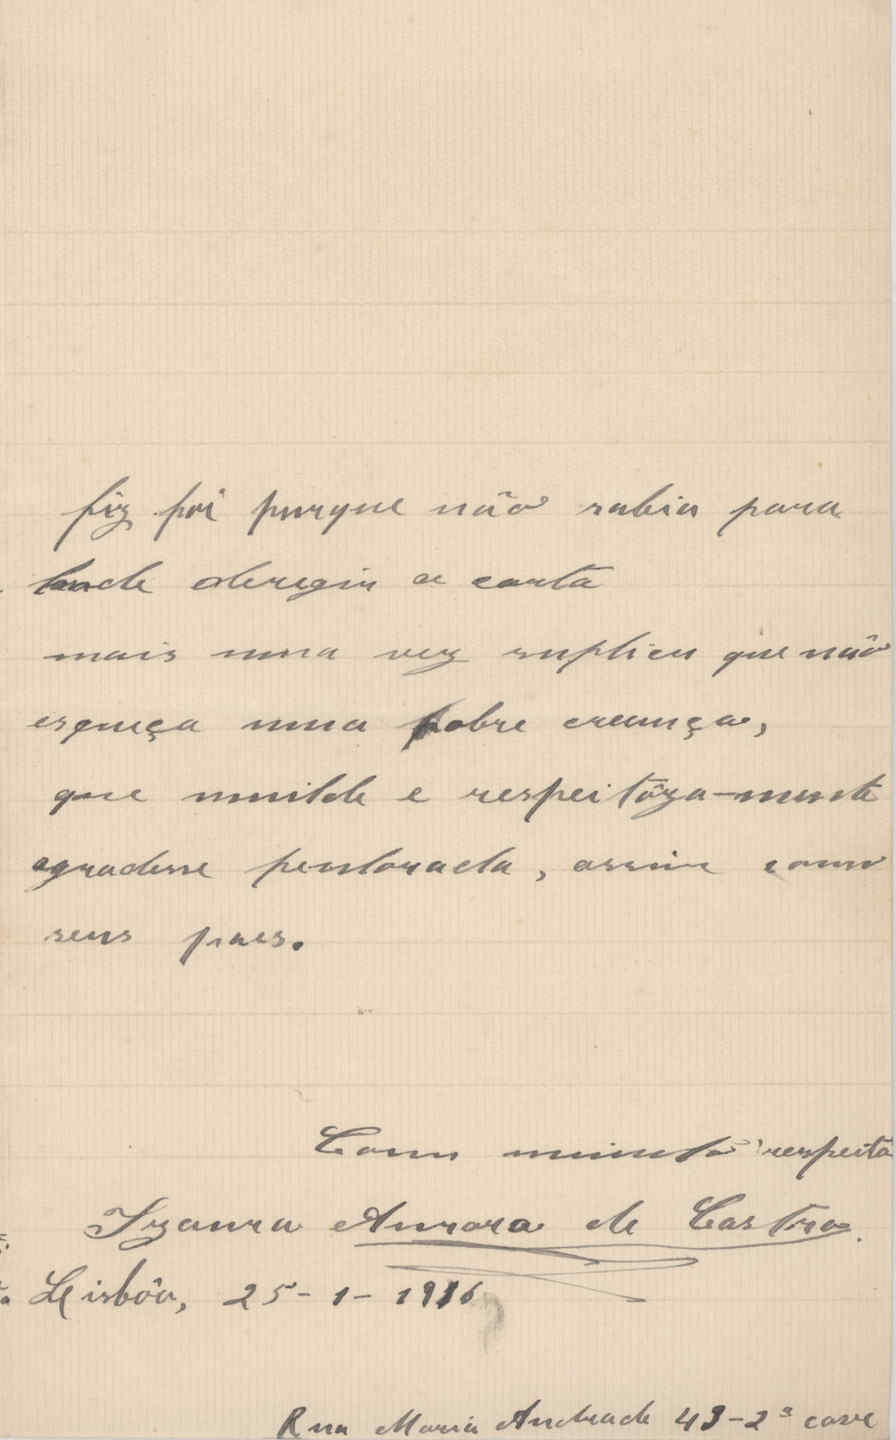 fiz foi purque não sabia para
onde deregir a carta
mais uma vez suplico que não
esqueça uma pobre creança,
que umilde e respeitôza-mente
agradesse penhorada, assim como
seus paes.
Com muinto respeito
Izaura Aurora de Castro.
Lisbôa, 25-1-1916
Rua Maria Andrade 43-2ª cave